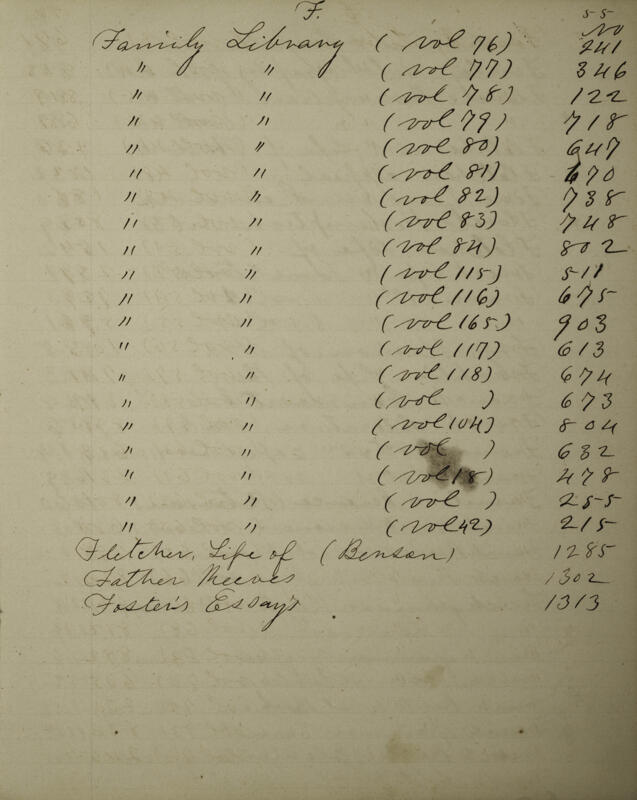 F.
55
No
Family Library (vol 76) 241
" " (vol 77) 346
" " (vol 78) 122
" " (vol 79) 718
" " (vol 80) 647
" " (vol 81) 670
" " (vol 82) 738
" " (vol 83) 748
" " (vol 84) 802
" " (vol 115) 511
" " (vol 116) 675
" " (vol 165) 903
" " (vol 117) 613
" " (vol 118) 674
" " (vol ) 673
" " (vol 104) 804
" " (vol ) 632
" " (vol 18) 478
" " (vol ) 255
" " (vol 42) 215
Fletcher, Life of (Benson) 1285
Father Reeves 1302
Foster's Essay's 1313